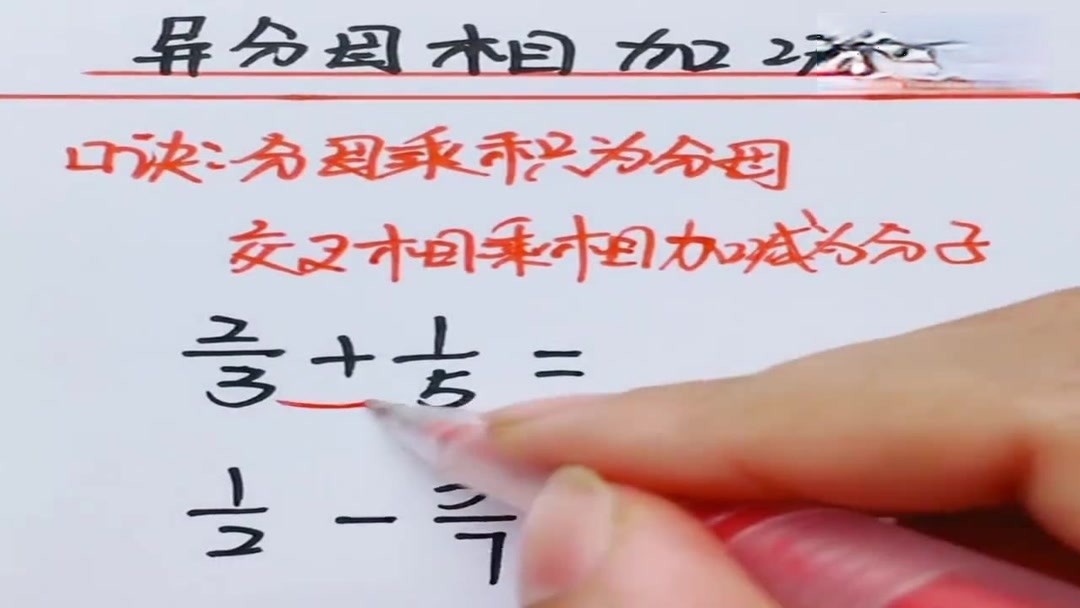 异分母相加
口诀:分母乘积为分母
交叉相乘相加减为分子
2/3 + 1/5 =
1/2 - /7